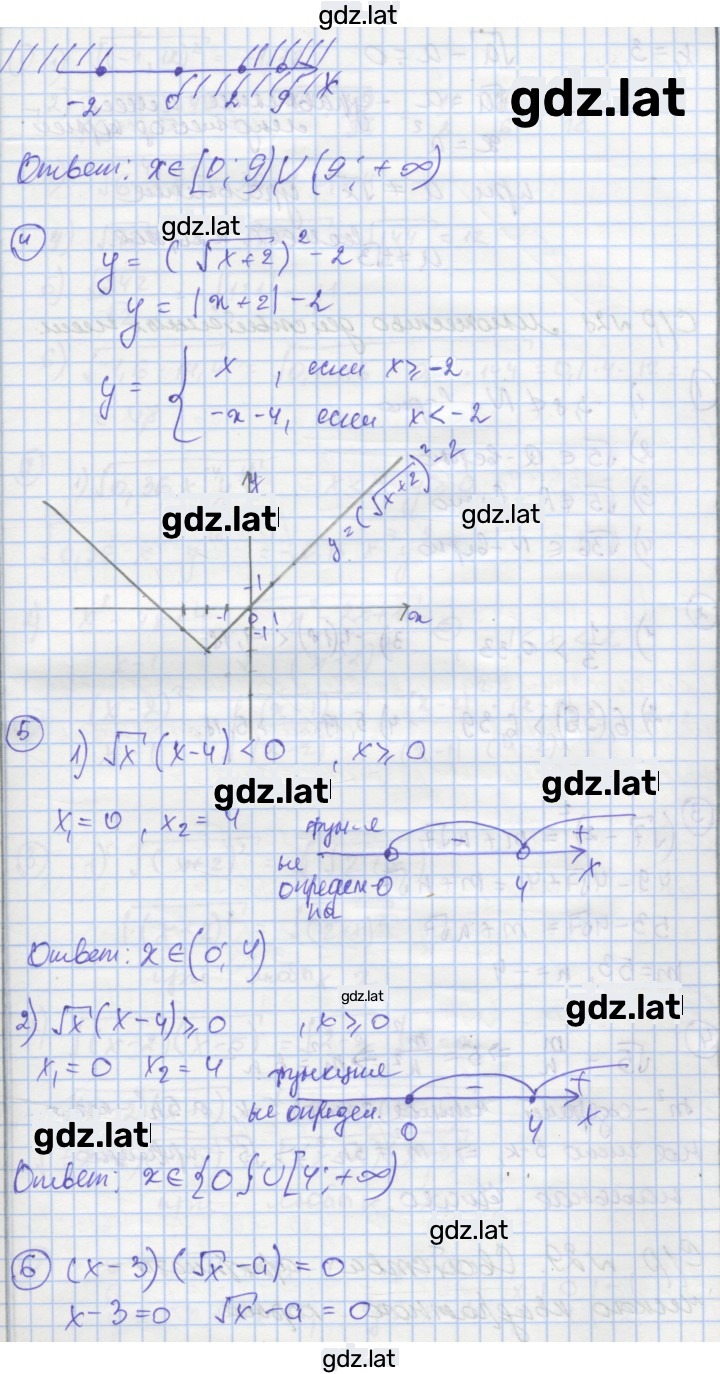 gdz.lat
-2 0 2 9 x
gdz.lat
Ответ: x∈[0; 9)∪(9; +∞)
4
gdz.lat
y = (√x+2)² - 2
y = |x+2| - 2
y = { x, если x ⩾ -2
-x-4, если x < -2
y
gdz.lat
gdz.lat
y = (√x+2)² - 2
1
-1 0 1 x
-1
5
1) √x (x-4) < 0, x ⩾ 0
gdz.lat
gdz.lat
x₁ = 0, x₂ = 4
фун-я
не
определе-
на
- +
0 4 x
Ответ: x∈(0; 4)
gdz.lat
gdz.lat
2) √x (x-4) ⩾ 0, x ⩾ 0
x₁ = 0 x₂ = 4
функция
не определ.
- +
0 4 x
gdz.lat
Ответ: x∈{0}∪[4; +∞)
gdz.lat
6 (x-3)(√x-a) = 0
x-3=0 √x-a=0
gdz.lat